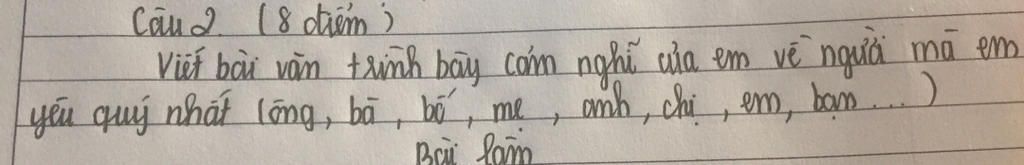 Câu 2 (8 điểm)
Viết bài văn trình bày cảm nghĩ của em về người mà em
yêu quý nhất (ông, bà, bố, mẹ, anh, chị, em, bạn...)
Bài làm